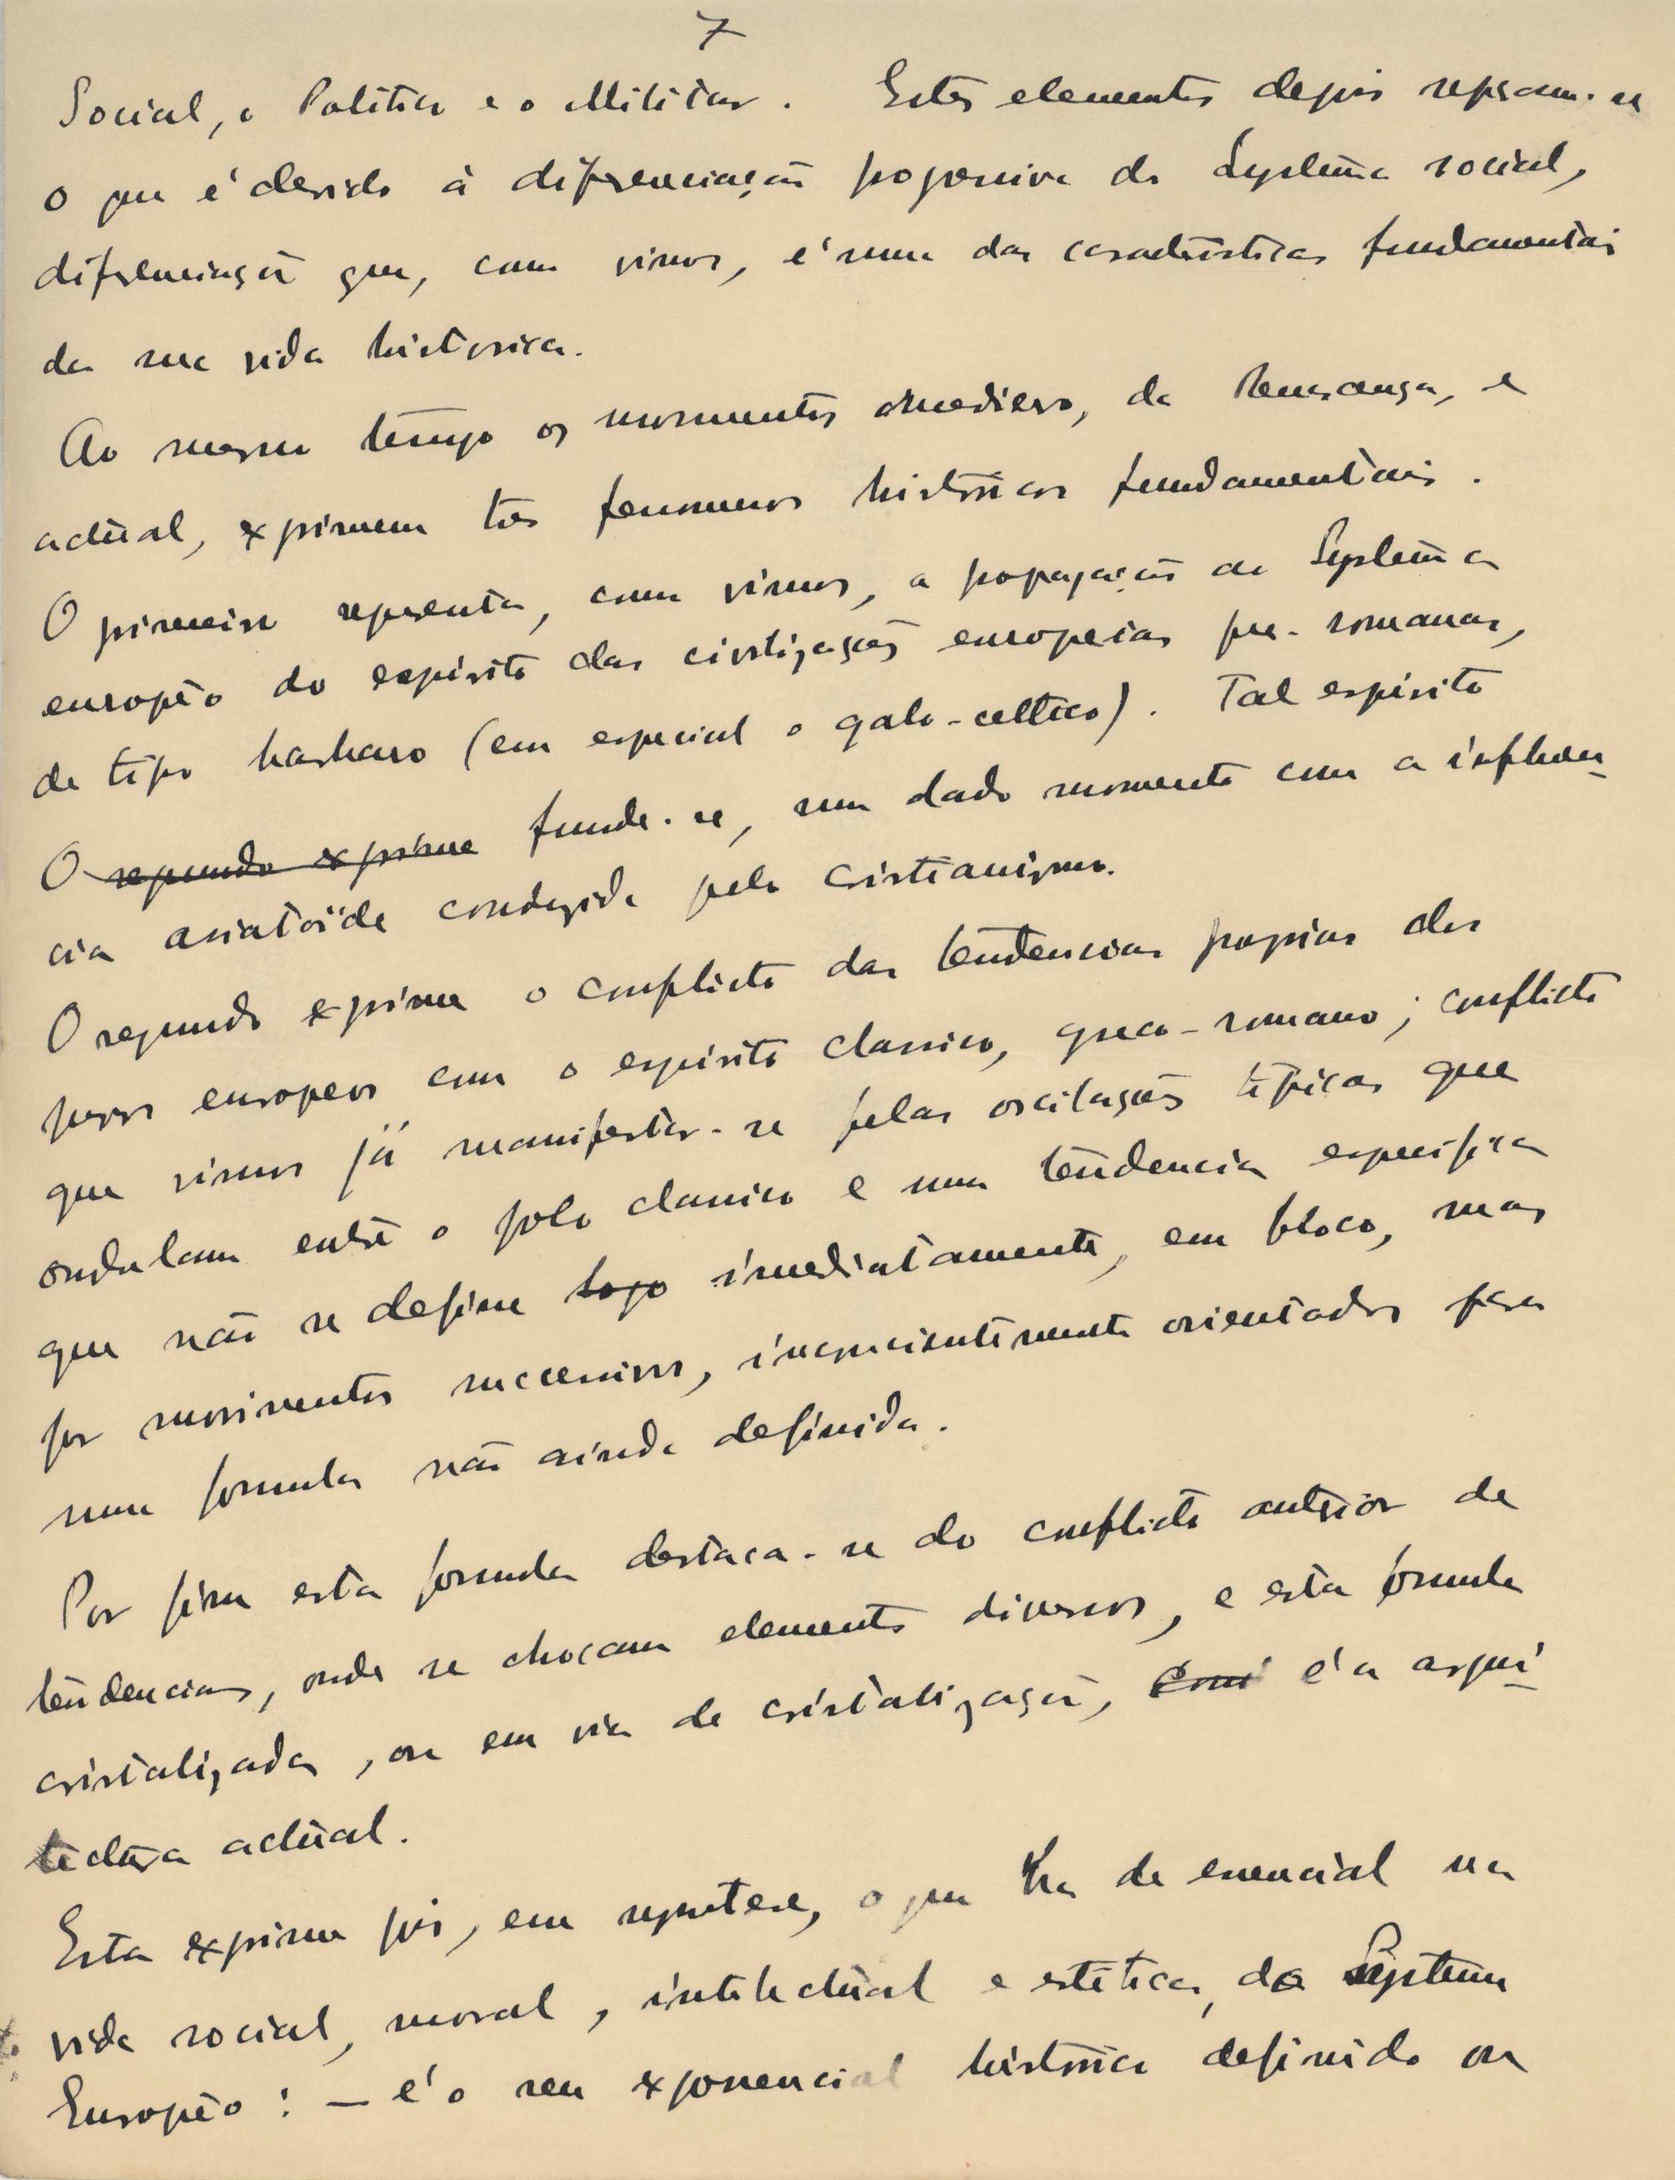 7
Social, o Politico e o Militar. Estes elementos depois separam-se
o que é devido á diferenciação progressiva do Systema social,
diferenciação que, como vimos, é uma das caracteristicas fundamentais
da sua vida historica.
Ao mesmo tempo os momentos medievo, da Renascença, e
actual, exprimem tres fenomenos históricos fundamentais.
O primeiro representa, como vimos, a propagação ao Systema
europêo do espirito das civilizações europeias pre-romanas,
de tipo barbaro (em especial o galo-celtico). Tal espirito
O segundo exprime funde-se, num dado momento com a influen-
cia asiatoïde conduzida pelo cristianismo.
O segundo exprime o conflicto das tendencias proprias dos
povos europeus com o espirito classico, greco-romano; conflicto
que vimos já manifestar-se pelas oscilações tipicas que
ondulam entre o polo classico e uma tendencia especifica
que não se define logo imediatamente, em bloco, mas
por movimentos successivos, inconscientemente orientados para
uma formula não ainda definida.
Por fim esta formula destaca-se do conflicto anterior de
tendencias, onde se chocam elementos diversos, e esta formula
cristalizada, ou em via de cristalização, é a arqui-
tectura actual.
Esta exprime pois, em synthese, o que ha de essencial na
vida social, moral, intelectual e estetica, do Systema
Europêo: — é o seu exponencial histórico definido ou